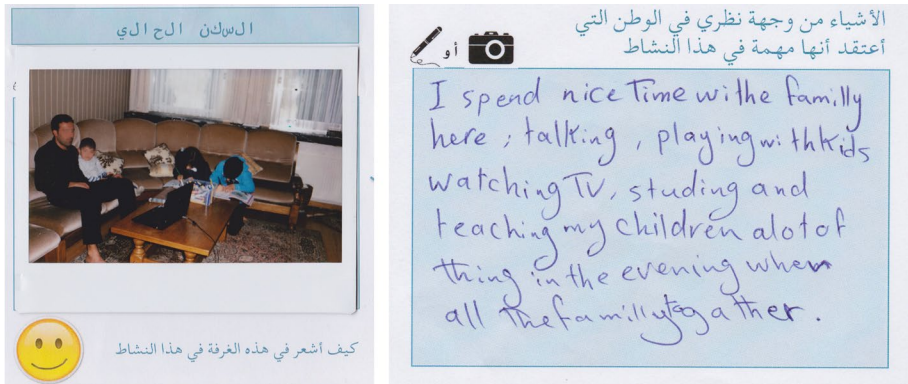 السكن الحالي
كيف أشعر في هذه الغرفة في هذا النشاط
الأشياء من وجهة نظري في الوطن التي
أعتقد أنها مهمة في هذا النشاط
أو
I spend nice Time withe familly
here ; talking , playing with Kids
watching TV, studing and
teaching my children alot of
thing in the evening when
all the familly togather.